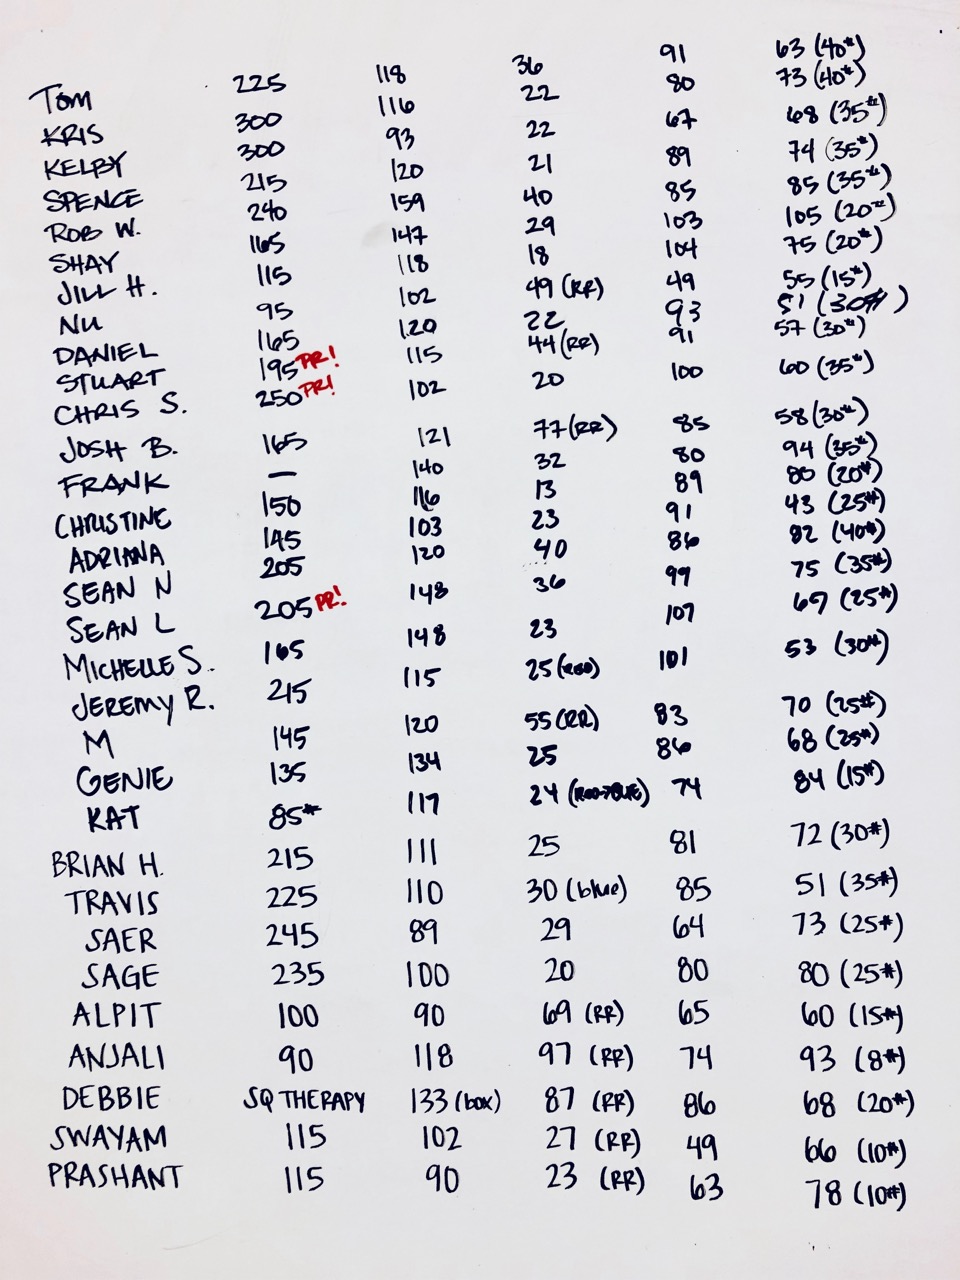 Tom 225 118 36 91 63 (40#)
KRIS 300 116 22 80 73 (40#)
KELBY 300 93 22 67 68 (35#)
SPENCE 215 120 21 89 74 (35#)
ROB W. 240 159 40 85 85 (35#)
SHAY 165 147 29 103 105 (20#)
JILL H. 115 118 18 104 75 (20#)
NU 95 102 49 (RR) 49 55 (15#)
DANIEL 165 120 22 93 51 (30#)
STUART 195 PR! 115 44 (RR) 91 57 (30#)
CHRIS S. 250 PR! 102 20 100 60 (35#)
JOSH B. 165 121 77 (RR) 85 58 (30#)
FRANK — 140 32 80 94 (35#)
CHRISTINE 150 116 13 89 80 (20#)
ADRIANA 145 103 23 91 43 (25#)
SEAN N 205 120 40 86 82 (40#)
SEAN L 205 PR! 148 36 99 75 (35#)
MICHELLE S. 165 148 23 107 69 (25#)
JEREMY R. 215 115 25 (RED) 101 53 (30#)
M 145 120 55 (RR) 83 70 (25#)
GENIE 135 134 25 86 68 (25#)
KAT 85# 117 24 (RED→BLUE) 74 84 (15#)
BRIAN H. 215 111 25 81 72 (30#)
TRAVIS 225 110 30 (blue) 85 51 (35#)
SAER 245 89 29 64 73 (25#)
SAGE 235 100 20 80 80 (25#)
ALPIT 100 90 69 (RR) 65 60 (15#)
ANJALI 90 118 97 (RR) 74 93 (8#)
DEBBIE SQ THERAPY 133 (box) 87 (RR) 86 68 (20#)
SWAYAM 115 102 27 (RR) 49 66 (10#)
PRASHANT 115 90 23 (RR) 63 78 (10#)